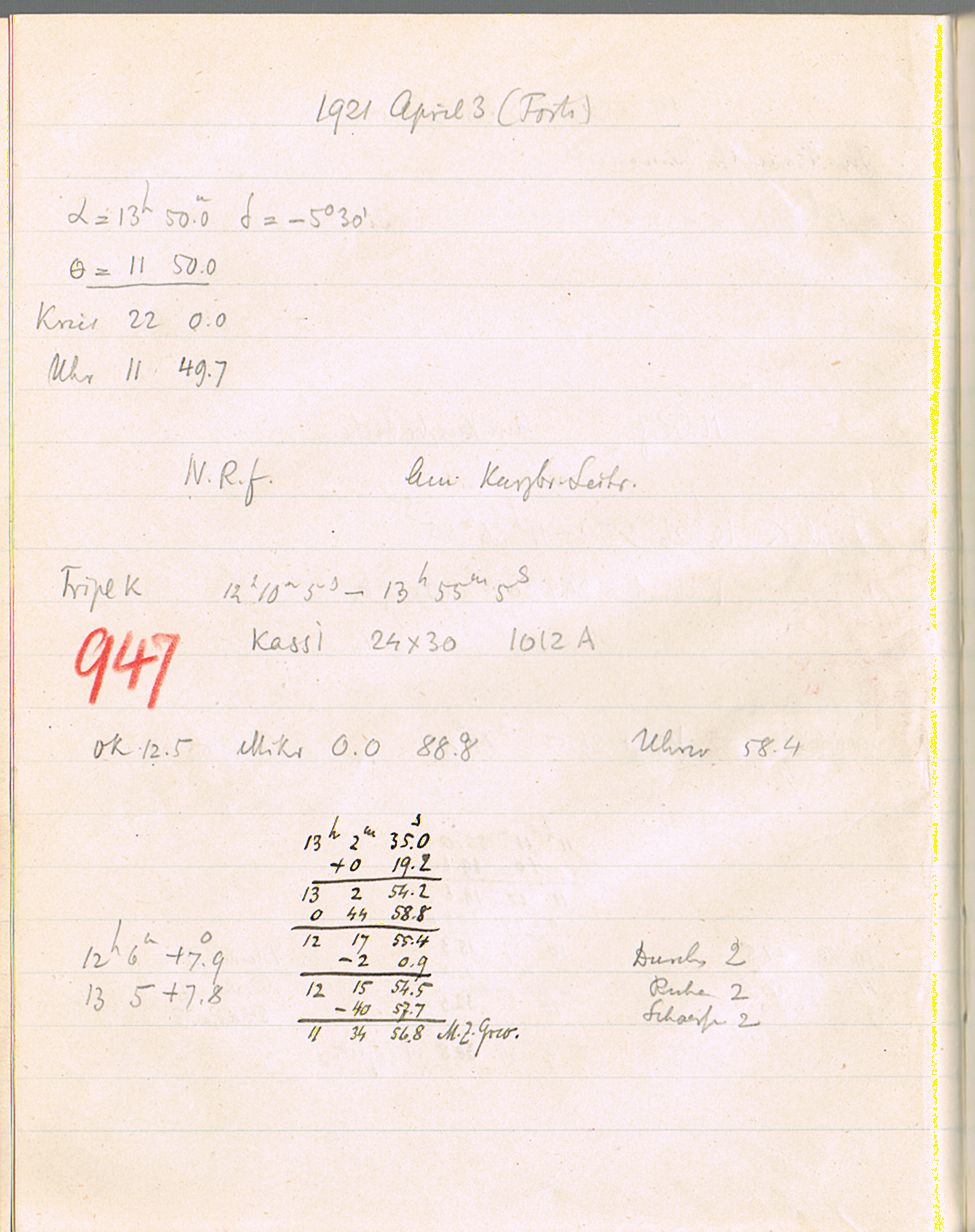 1921 April 3 (Forts)
α = 13ʰ 50.ᵐ0 δ = -5°30'
θ = 11 50.0
Kreis 22 0.0
Uhr 11 49.7
N.R.f. Am. Karzbr-Leitr.
Tripel K 12ʰ10ᵐ5ˢ — 13ʰ55ᵐ5ˢ
947 Kass 1 24×30 1012 A
OK 12.5 Mikr 0.0 88.8 Uhrw 58.4
13ʰ 2ᵐ 35.ˢ0
+0 19.2
13 2 54.2
0 44 58.8
12 17 55.4
12ʰ6ᵐ +7.°9 -2 0.9 Durchs 2
13 5 +7.8 12 15 54.5 Ruhe 2
-40 57.7 Schaerfe 2
11 34 56.8 M.Z.Grw.